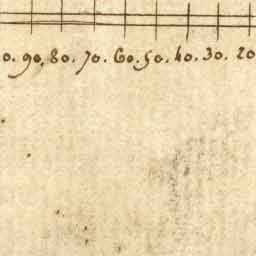 0. 90. 80. 70. 60. 50. 40. 30. 20